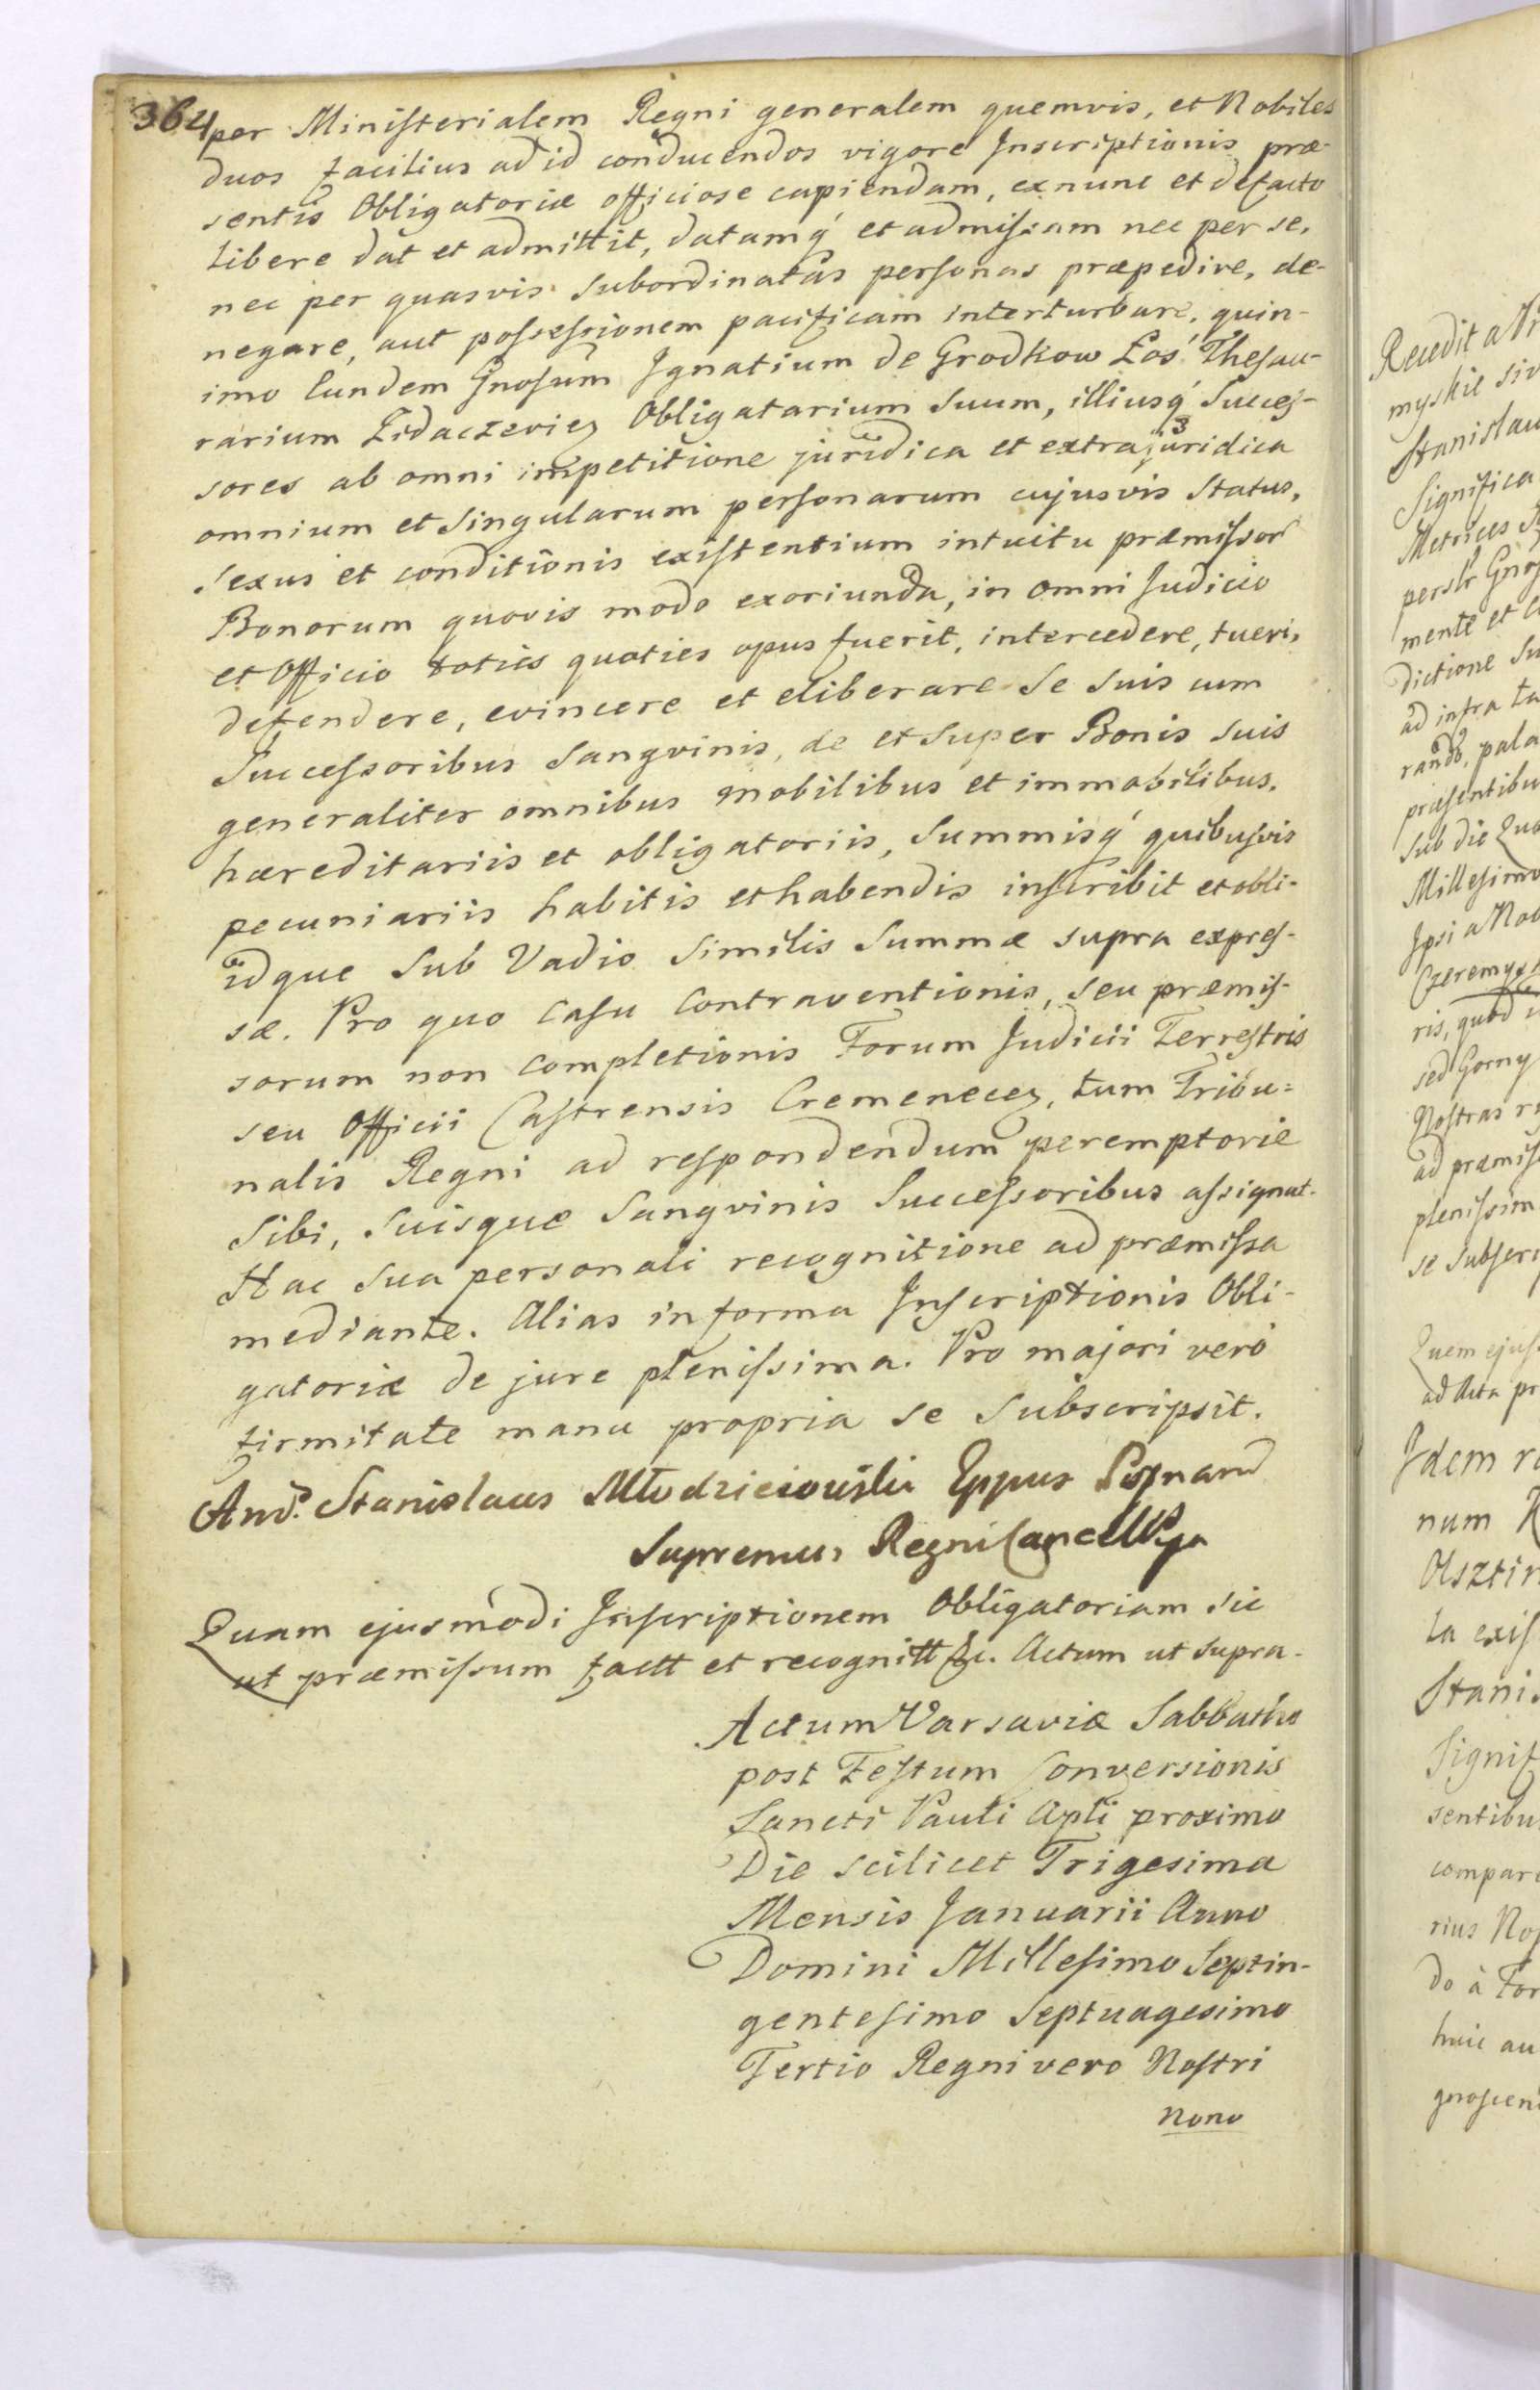 364
per Ministerialem Regni generalem quemvis, et Nobiles
duos facilius ad id conducendos vigore Inscriptionis præ-
sentis Obligatoriæ officiose capiendam, ex nunc et defacto
libere dat et admittit, datamq́ et admissam nec per se,
nec per quasvis subordinatas personas præpedire, de-
negare, aut possessionem pacificam interturbare, quin-
imo Eundem Gnosum Ignatium de Grodkow Łoś Thesau-
rarium Zidaczevien Obligatarium Suum, illiusq́ Succes-
sores ab omni impetitione juridica et extrajuridica
omnium et Singularum personarum cujusvis Status,
Sexus et conditionis existentium intuitu præmissor
Bonorum quovis modo exoriunda, in omni Judicio
et Officio toties quoties opus fuerit, intercedere, tueri,
defendere, evincere et eliberare Se Suis cum
Successoribus Sangvinis, de et Super Bonis Suis
generaliter omnibus mobilibus et immobilibus,
hæreditariis et obligatoriis, Summisq́ quibusvis
pecuniariis habitis et habendis inscribit et obli-
idque Sub Vadio Similis Summæ supra expres-
sæ. Pro quo Casu Contraventionis, seu præmis-
sorum non completionis Forum Judicii Terrestris
seu Officii Castrensis Cremenecen, tum Tribu-
nalis Regni ad respondendum peremptorie
Sibi, Suisque Sangvinis Successoribus assignat.
Hac Sua personali recognitione ad præmissa
mediante. Alias in forma Inscriptionis Obli-
gatoriæ de jure plenissima. Pro majori verò
firmitate manu propria se Subscripsit.
And. Stanislaus Młodzieiowski Eppus Poznan
Supremus Regni Cancell
Quam ejusmodi Inscriptionem Obligatoriam sic
ut præmissum factt et recognitt &c. Actum ut supra.
Actum Varsaviæ Sabbatho
post Festum Conversionis
Sancti Pauli Apli proximo
Die scilicet Trigesima
Mensis Januarii Anno
Domini Millesimo Septin-
gentesimo Septuagesimo
Tertio Regni vero Nostri
Nono
Recedit a
myskie
Stanislau
Significa
Metrices
mente et
dictione Su
ad infra
rando, pala
præsentibu
Sub die
Millesimo
Ipsi a
ris, quod
sed Gorny
Nostras
ad præmiss
plenissim
se Subscri
Quem ejus
ad Acta pr
Idem
num
Olsztin
ta exis
Stanis
Signif
sentibu
compar
rius
do à For
huic au
gnoscen